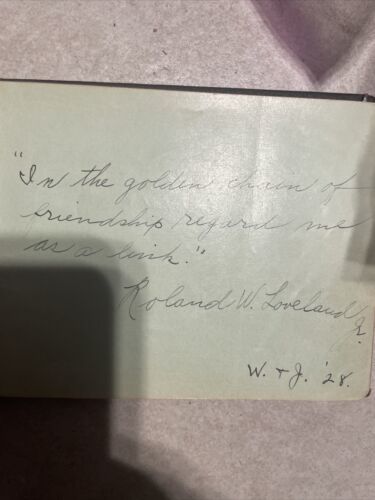 "In the golden chain of
friendship regard me
as a link."
Roland W. Loveland Jr.
W. + J. '28.